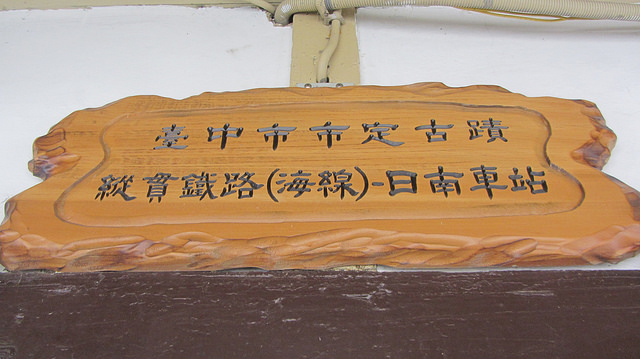 臺中市市定古蹟
縱貫鐵路(海線)-日南車站